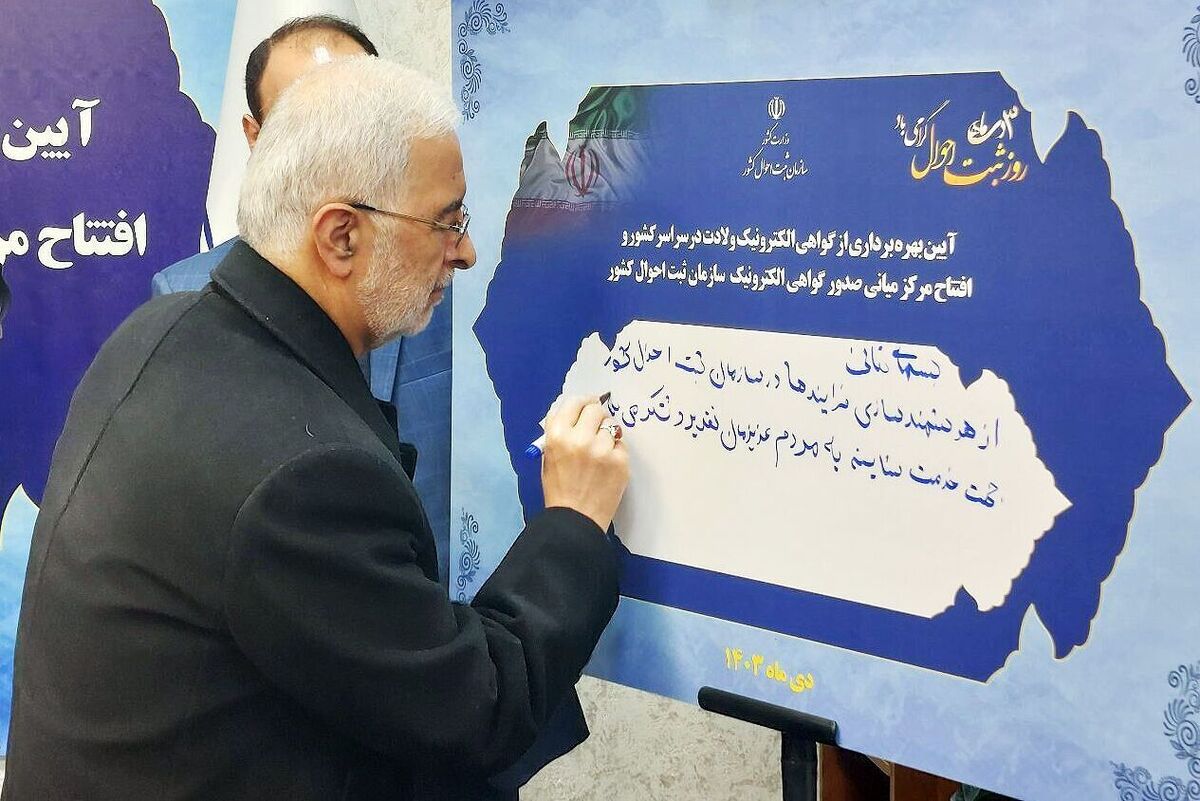 آیین
افتتاح مر
۳ دی ماه
روز ثبت احوال گرامی باد
وزارت کشور
سازمان ثبت احوال کشور
آیین بهره برداری از گواهی الکترونیک ولادت در سراسر کشور و
افتتاح مرکز میانی صدور گواهی الکترونیک سازمان ثبت احوال کشور
از هوشمندسازی فرایندها در سازمان ثبت احوال کشور
جهت خدمت به مردم عزیزمان تقدیر و تشکر می
دی ماه ۱۴۰۳